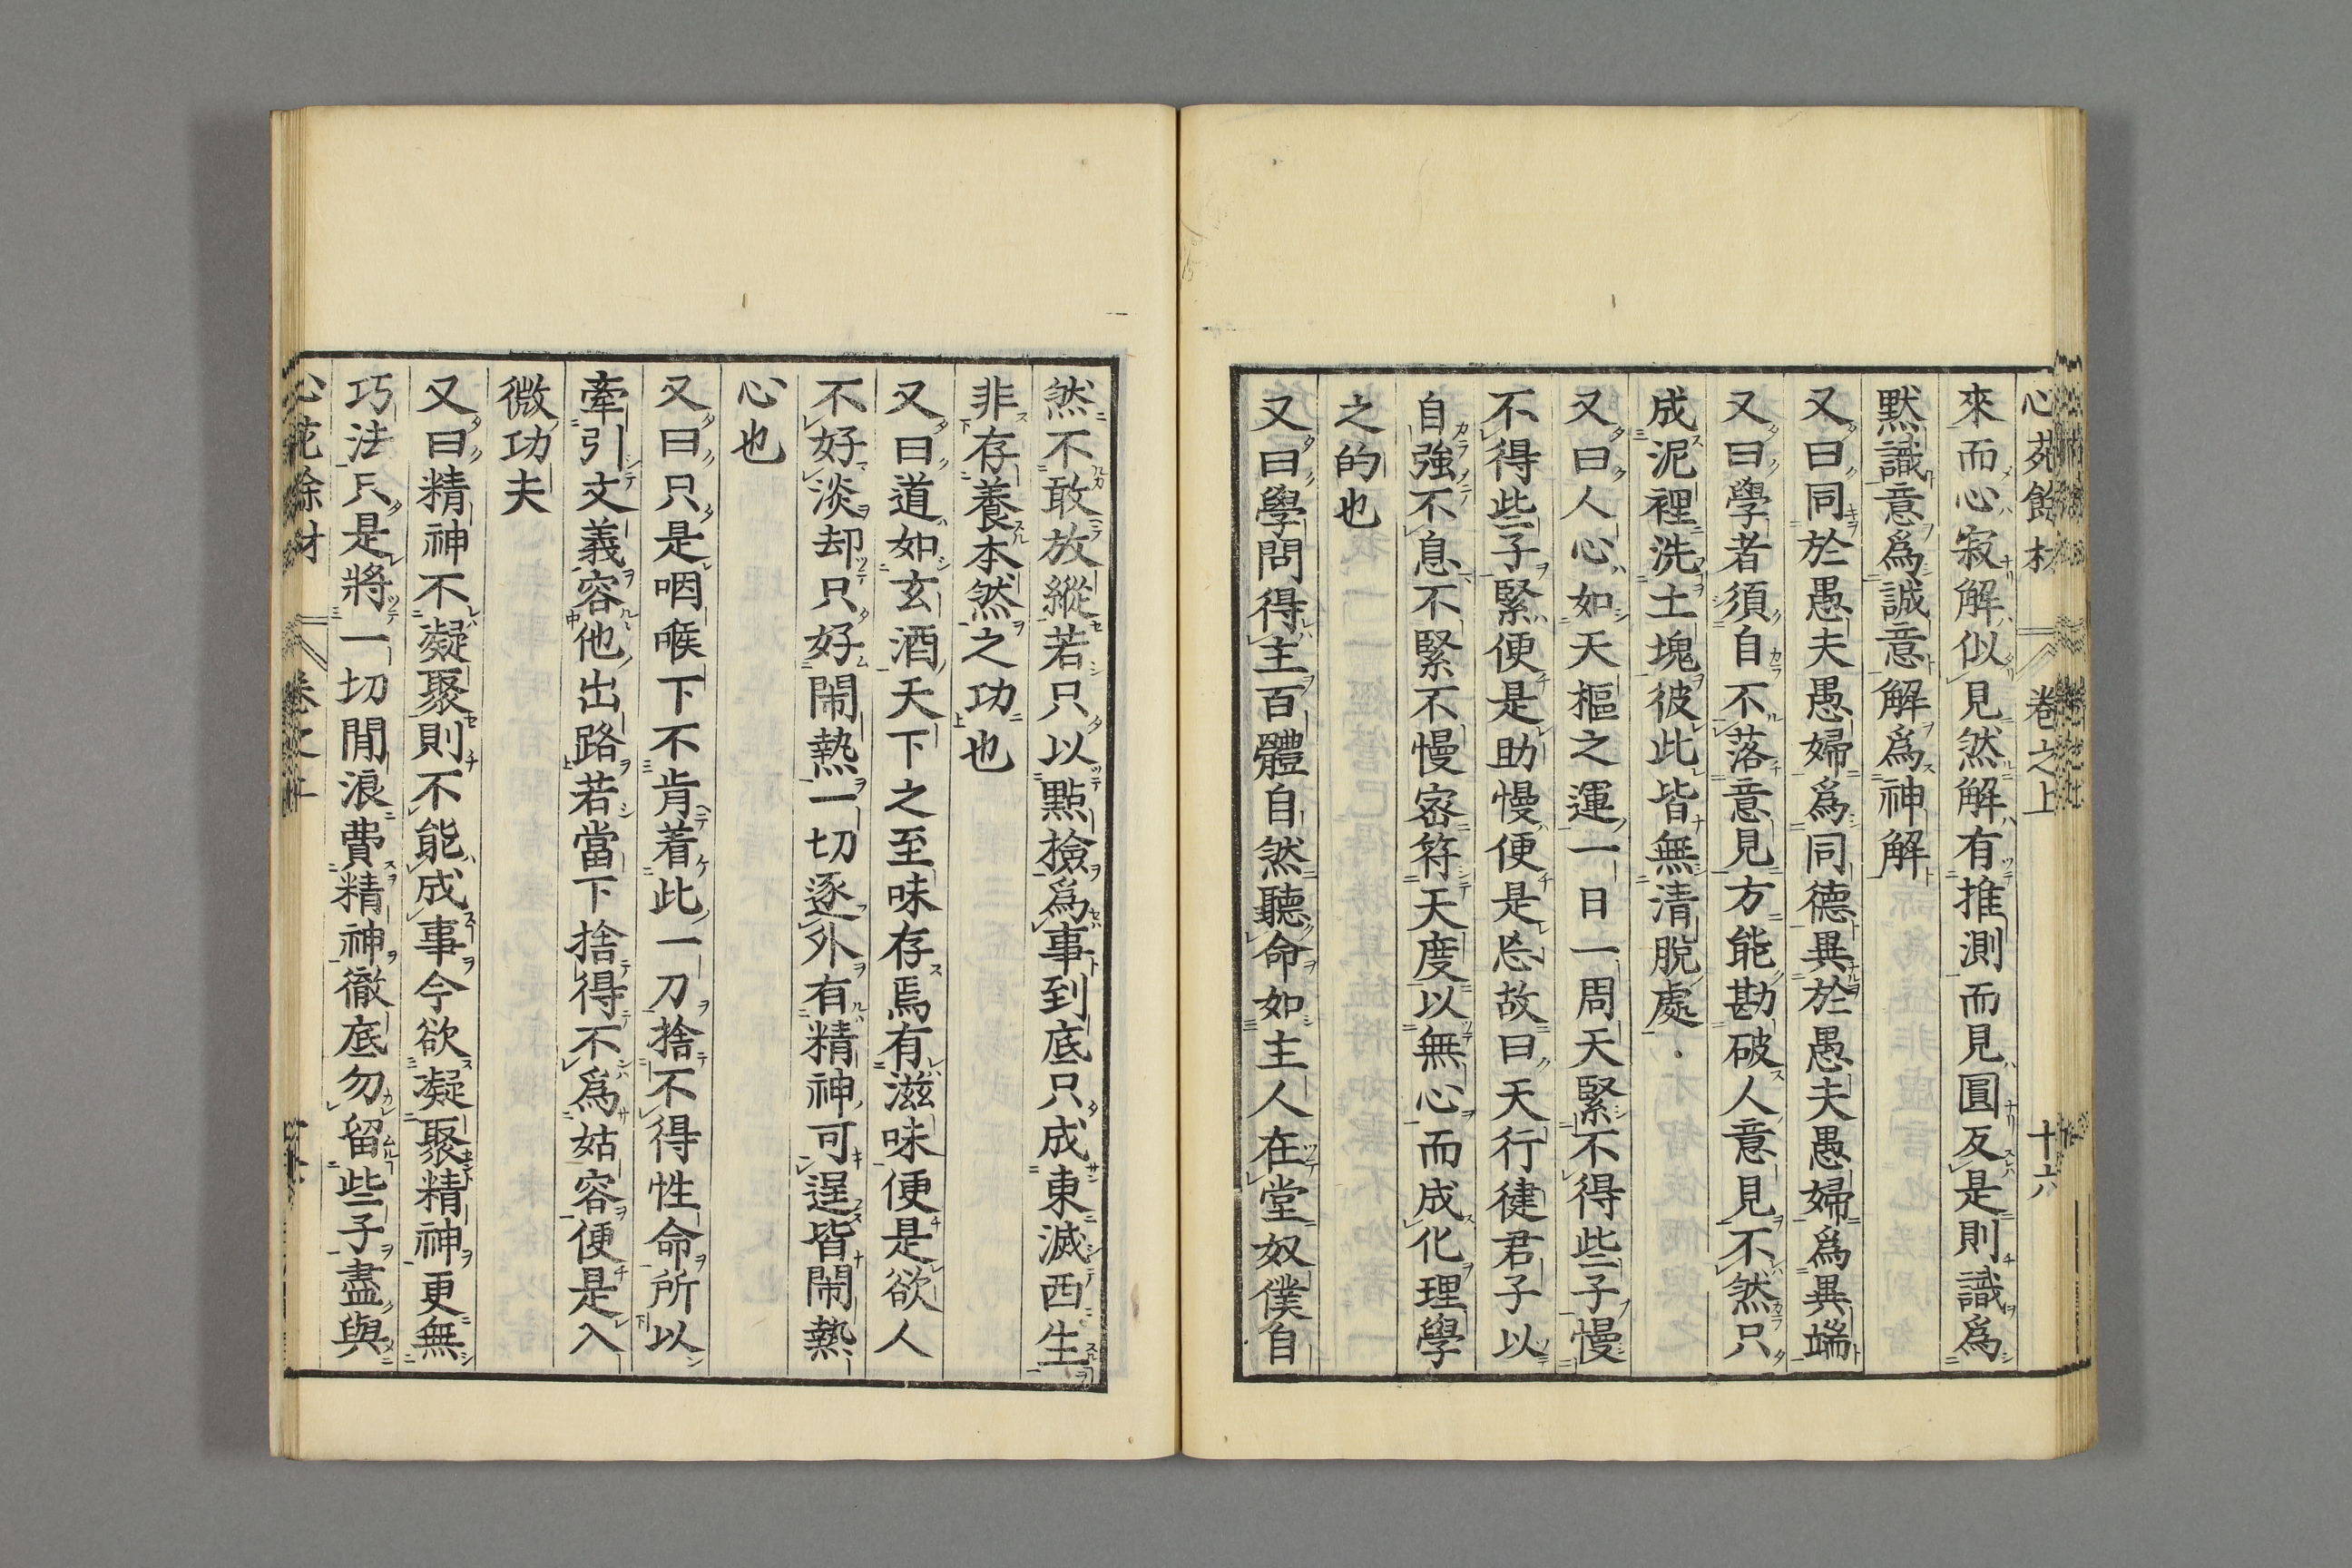 心苑餘材 卷之上 十六
來而心寂解似見然解有推測而見圓反是則識爲
默識意爲誠意解爲神解
又曰同於愚夫愚婦爲同德異於愚夫愚婦爲異端
又曰學者須自不落意見方能勘破人意見不然只
成泥裡洗土塊彼此皆無清脫處
又曰人心如天樞之運一日一周天緊不得些子慢
不得些子緊便是助慢便是忘故曰天行健君子以
自強不息不緊不慢密符天度以無心而成化理學
之的也
又曰學問得主百體自然聽命如主人在堂奴僕自
然不敢放縱若只以點撿爲事到底只成東滅西生
非存養本然之功也
又曰道如玄酒天下之至味存焉有滋味便是欲人
不好淡却只好鬧熱一切逐外有精神可逞皆鬧熱
心也
又曰只是咽喉下不肯着此一刀捨不得性命所以
牽引文義容他出路若當下捨得不爲姑容便是入
微功夫
又曰精神不凝聚則不能成事今欲凝聚精神更無
巧法只是將一切閒浪費精神徹底勿留些子盡與
心苑餘材 卷之上